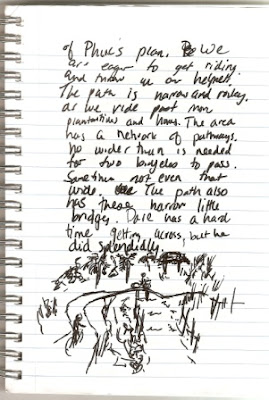 of Phuc's plan. We
are eager to get riding
and throw on our helmets.
The path is narrow and
as we ride past
plantations and homes. The area
has a network of pathways.
No wider than is needed
for two bicycles to pass.
Sometimes not even that
wide. The path also
has these narrow little
bridges. Dave has a hard
time getting across, but he
did splendidly.